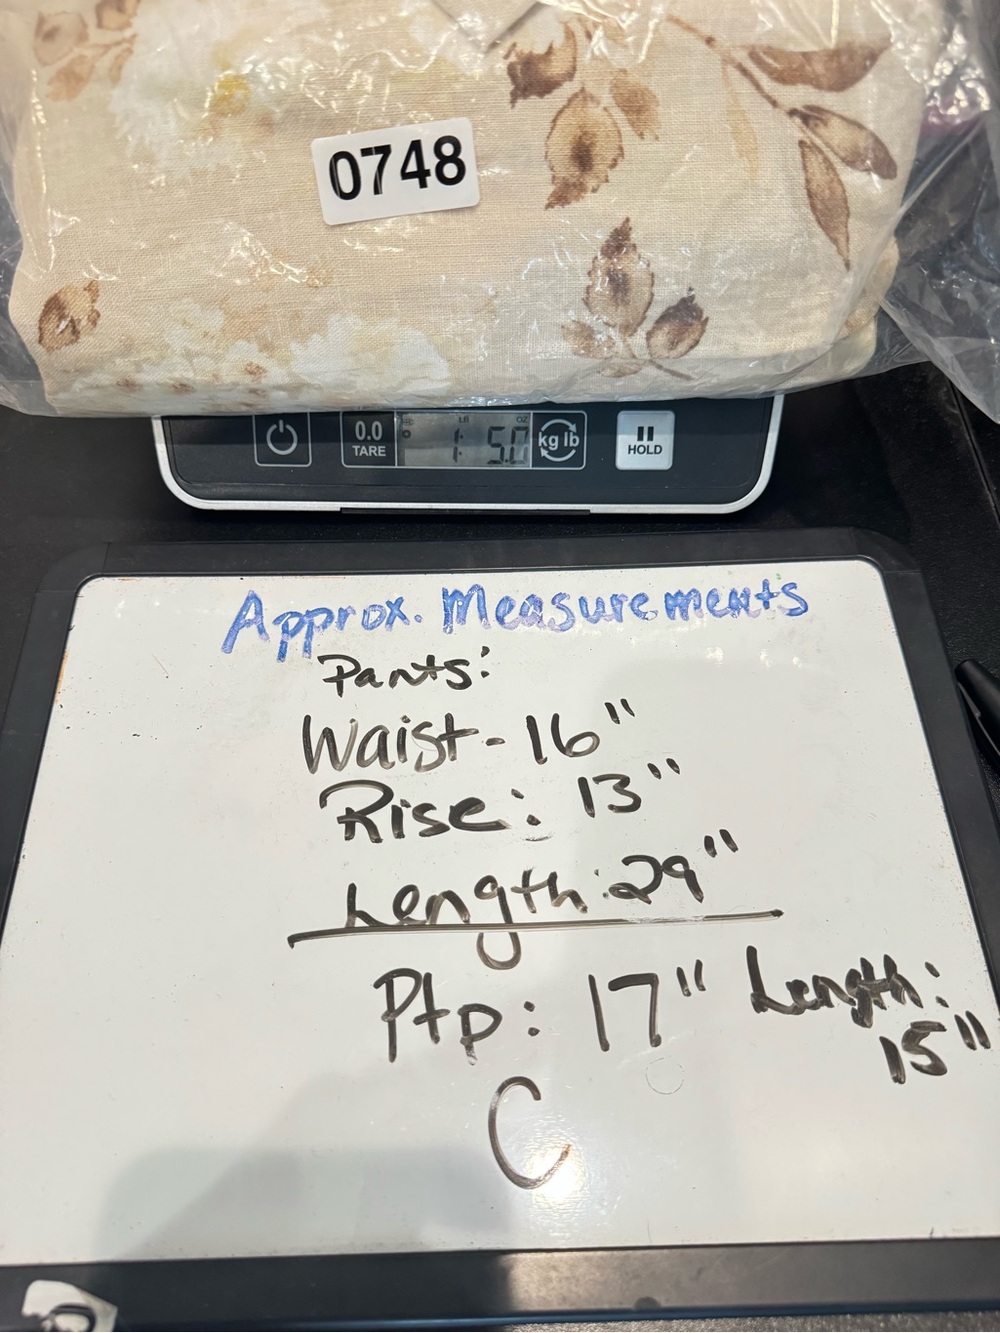 0748
0.0
TARE
LB OZ
1: 5.0
kg lb
HOLD
Approx. Measurements
Pants:
Waist - 16"
Rise: 13"
Length: 29"
Ptp: 17" Length:
15"
C